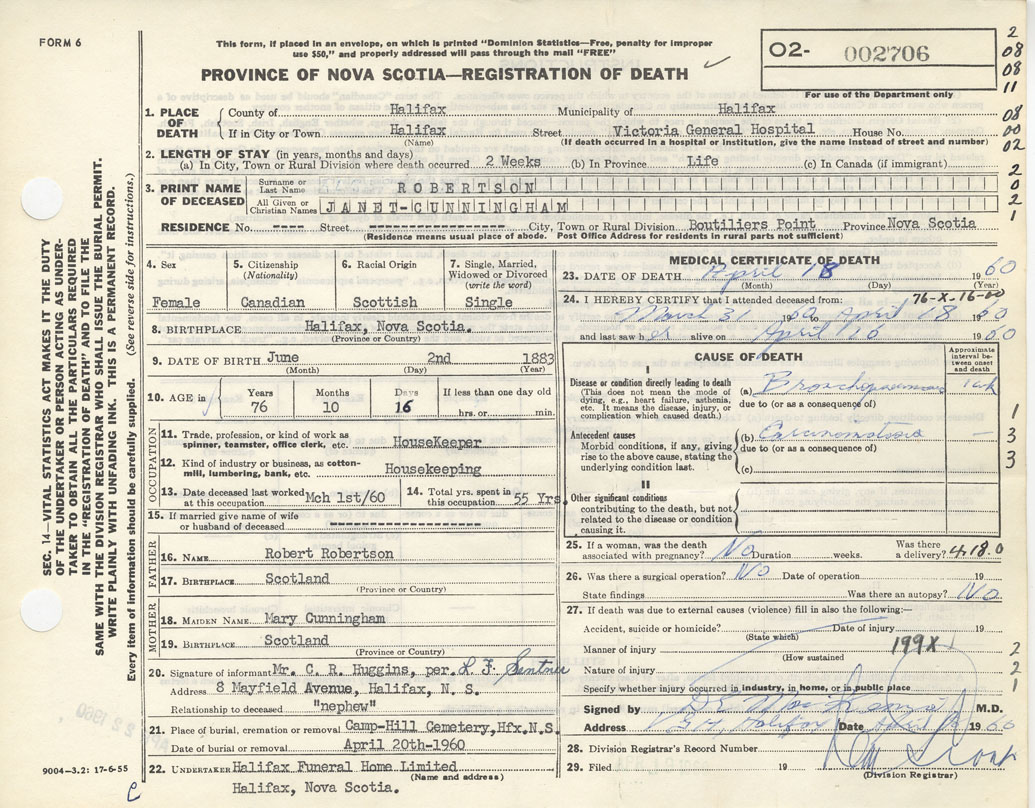 FORM 6
This form, if placed in an envelope, on which is printed "Dominion Statistics—Free, penalty for improper
use $50," and properly addressed will pass through the mail "FREE"
PROVINCE OF NOVA SCOTIA—REGISTRATION OF DEATH
O2- 002706
For use of the Department only
2
08
08
11
08
00
02
2
0
2
1
SEC. 14—VITAL STATISTICS ACT MAKES IT THE DUTY
OF THE UNDERTAKER OR PERSON ACTING AS UNDER-
TAKER TO OBTAIN ALL THE PARTICULARS REQUIRED
IN THE "REGISTRATION OF DEATH" AND TO FILE THE
SAME WITH THE DIVISION REGISTRAR WHO SHALL ISSUE THE BURIAL PERMIT.
WRITE PLAINLY WITH UNFADING INK. THIS IS A PERMANENT RECORD.
Every item of information should be carefully supplied. (See reverse side for instructions.)
1. PLACE OF DEATH
County of Halifax Municipality of Halifax
If in City or Town Halifax Street Victoria General Hospital House No.
(Name) (If death occurred in a hospital or institution, give the name instead of street and number)
2. LENGTH OF STAY (in years, months and days)
(a) In City, Town or Rural Division where death occurred 2 Weeks (b) In Province Life (c) In Canada (if immigrant)
3. PRINT NAME OF DECEASED
Surname or Last Name ROBERTSON
All Given or Christian Names JANET-CUNNINGHAM
RESIDENCE No. ---- Street -------------- City, Town or Rural Division Boutiliers Point Province Nova Scotia
(Residence means usual place of abode. Post Office Address for residents in rural parts not sufficient)
4. Sex
Female
5. Citizenship (Nationality)
Canadian
6. Racial Origin
Scottish
7. Single, Married, Widowed or Divorced (write the word)
Single
8. BIRTHPLACE Halifax, Nova Scotia.
(Province or Country)
9. DATE OF BIRTH June 2nd 1883
(Month) (Day) (Year)
10. AGE in Years 76 Months 10 Days 16 If less than one day old hrs. or min.
OCCUPATION
11. Trade, profession, or kind of work as spinner, teamster, office clerk, etc. HouseKeeper
12. Kind of industry or business, as cotton-mill, lumbering, bank, etc. Housekeeping
13. Date deceased last worked at this occupation Mch 1st/60
14. Total yrs. spent in this occupation 55 Yrs.
15. If married give name of wife or husband of deceased --------------------
FATHER
16. NAME Robert Robertson
17. BIRTHPLACE Scotland
(Province or Country)
MOTHER
18. MAIDEN NAME Mary Cunningham
19. BIRTHPLACE Scotland
(Province or Country)
20. Signature of informant Mr. C. R. Huggins, per.
Address 8 Mayfield Avenue, Halifax, N. S.
Relationship to deceased "nephew"
21. Place of burial, cremation or removal Camp-Hill Cemetery, Hfx.N.S.
Date of burial or removal April 20th-1960
22. UNDERTAKER Halifax Funeral Home Limited
(Name and address)
Halifax, Nova Scotia.
9004—3.2: 17-6-55
MEDICAL CERTIFICATE OF DEATH
23. DATE OF DEATH April 18 1960
(Month) (Day) (Year)
76-X-16-00
24. I HEREBY CERTIFY that I attended deceased from:
March 31 1960 to April 18 1960
and last saw her alive on April 1960
CAUSE OF DEATH
Approximate interval between onset and death
I
Disease or condition directly leading to death
(This does not mean the mode of dying, e.g., heart failure, asthenia, etc. It means the disease, injury, or complication which caused death.)
(a) Bronchopneumonia 1 wk
due to (or as a consequence of)
Antecedent causes
Morbid conditions, if any, giving rise to the above cause, stating the underlying condition last.
(b) Carcinomatosis
due to (or as a consequence of)
(c)
1
3
3
II
Other significant conditions
contributing to the death, but not related to the disease or condition causing it.
25. If a woman, was the death associated with pregnancy? No Duration weeks. Was there a delivery? 4.18.0
26. Was there a surgical operation? No Date of operation 19
State findings Was there an autopsy? No
27. If death was due to external causes (violence) fill in also the following:—
Accident, suicide or homicide? Date of injury 19
(State which)
Manner of injury 199X 2
(How sustained)
Nature of injury 2
Specify whether injury occurred in industry, in home, or in public place 1
Signed by M.D.
Address V.G.H. Halifax Date April 1960
28. Division Registrar's Record Number
29. Filed 19
(Division Registrar)